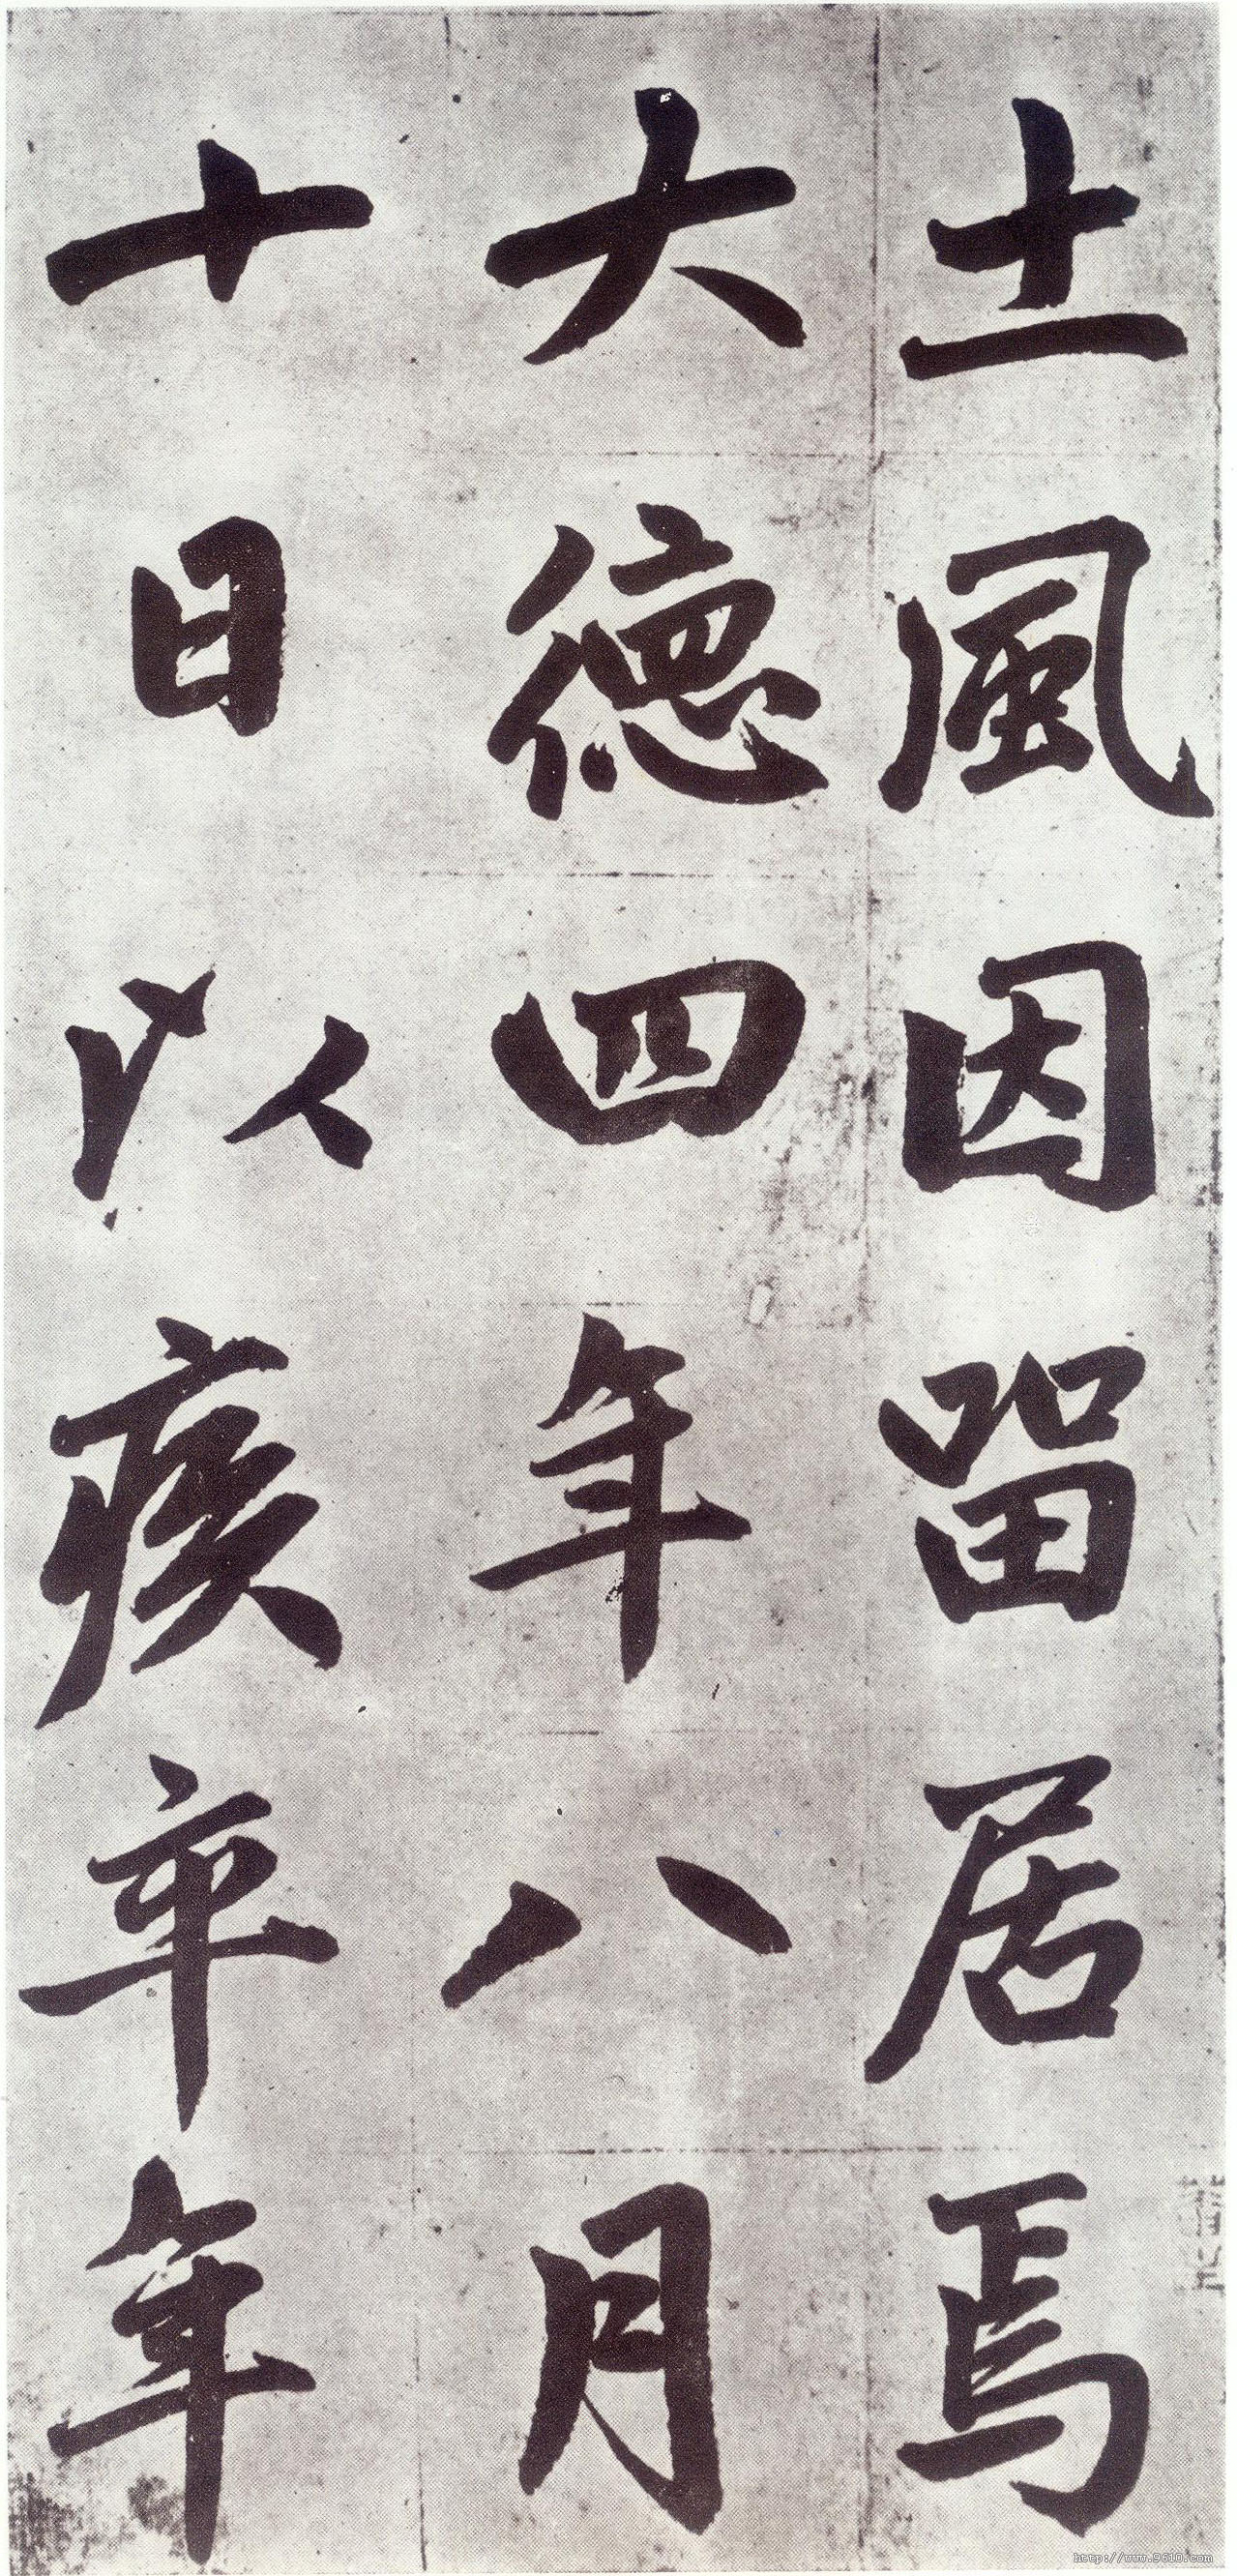 土風因留居焉
大德四年八月
十日以疾卒年
http://www.9610.com